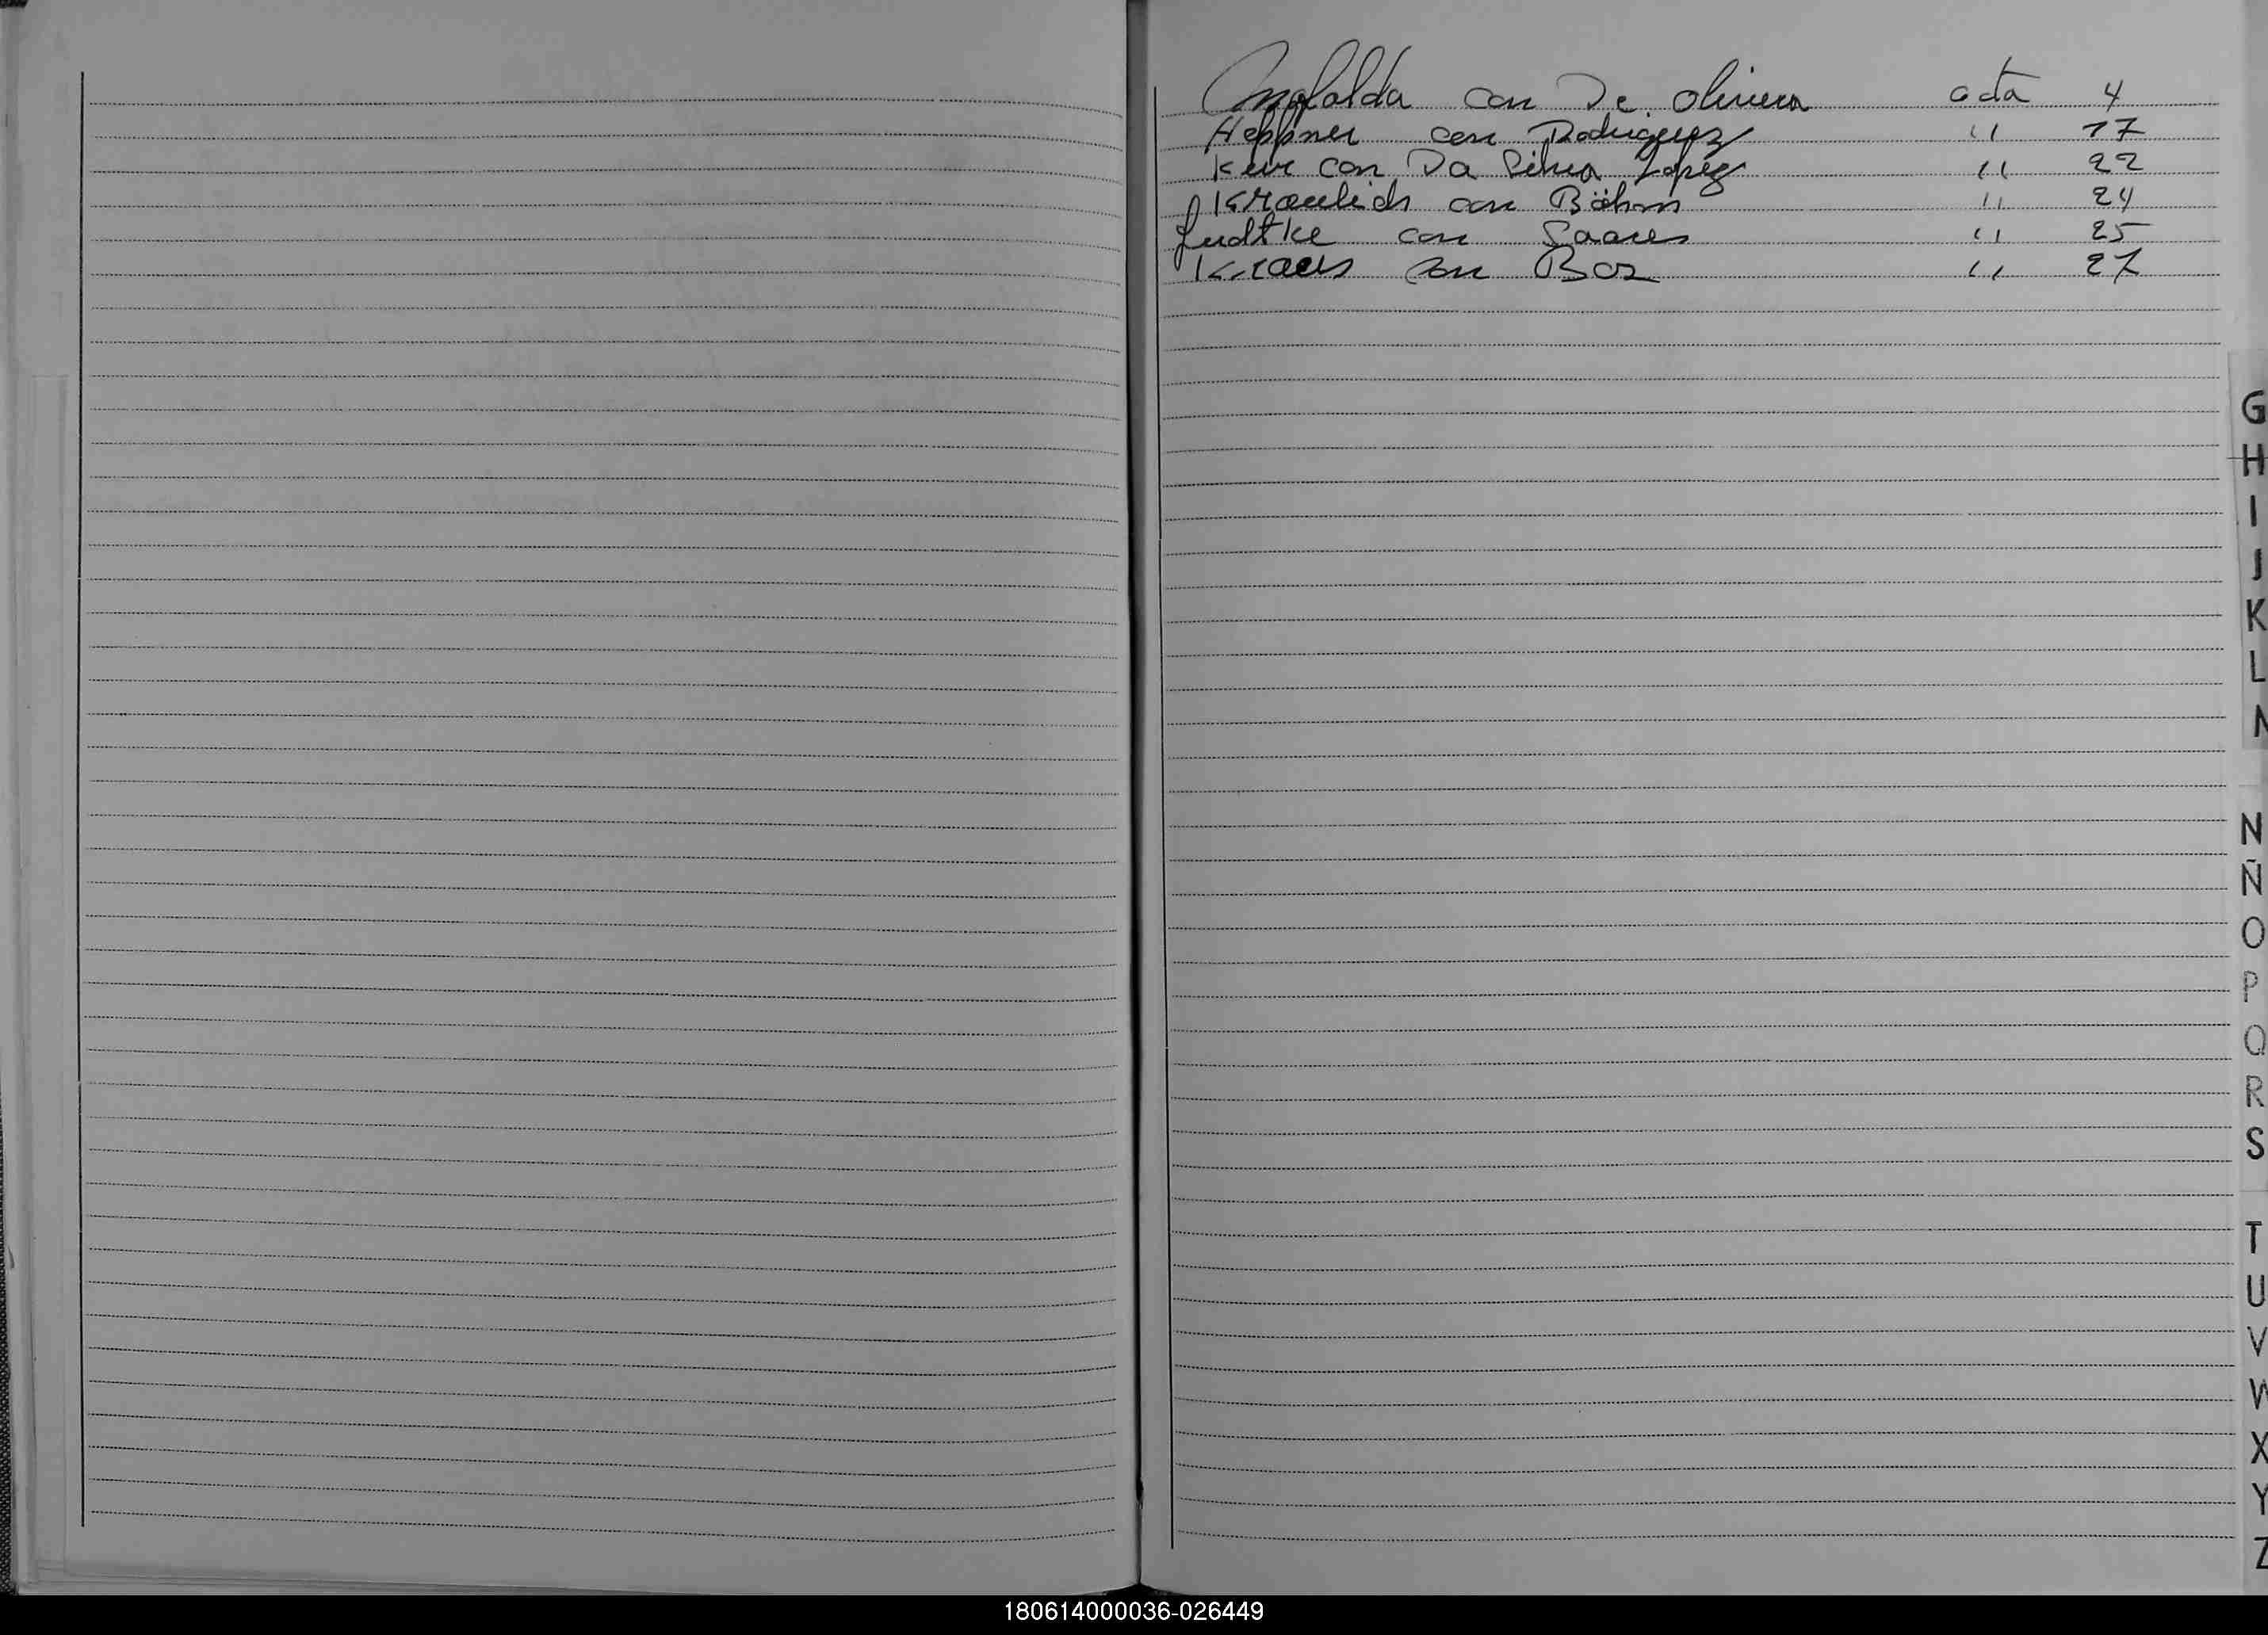 con De olivera acta 4
Heppner con Rodriguez " 17
Keir con Da Silva Lopez " 22
Kraulich con Böhm " 24
Ludtke con Soares " 25
Kraus con Boz " 27
G
H
I
J
K
L
N
Ñ
O
P
Q
R
S
T
U
V
W
X
Y
Z
180614000036-026449